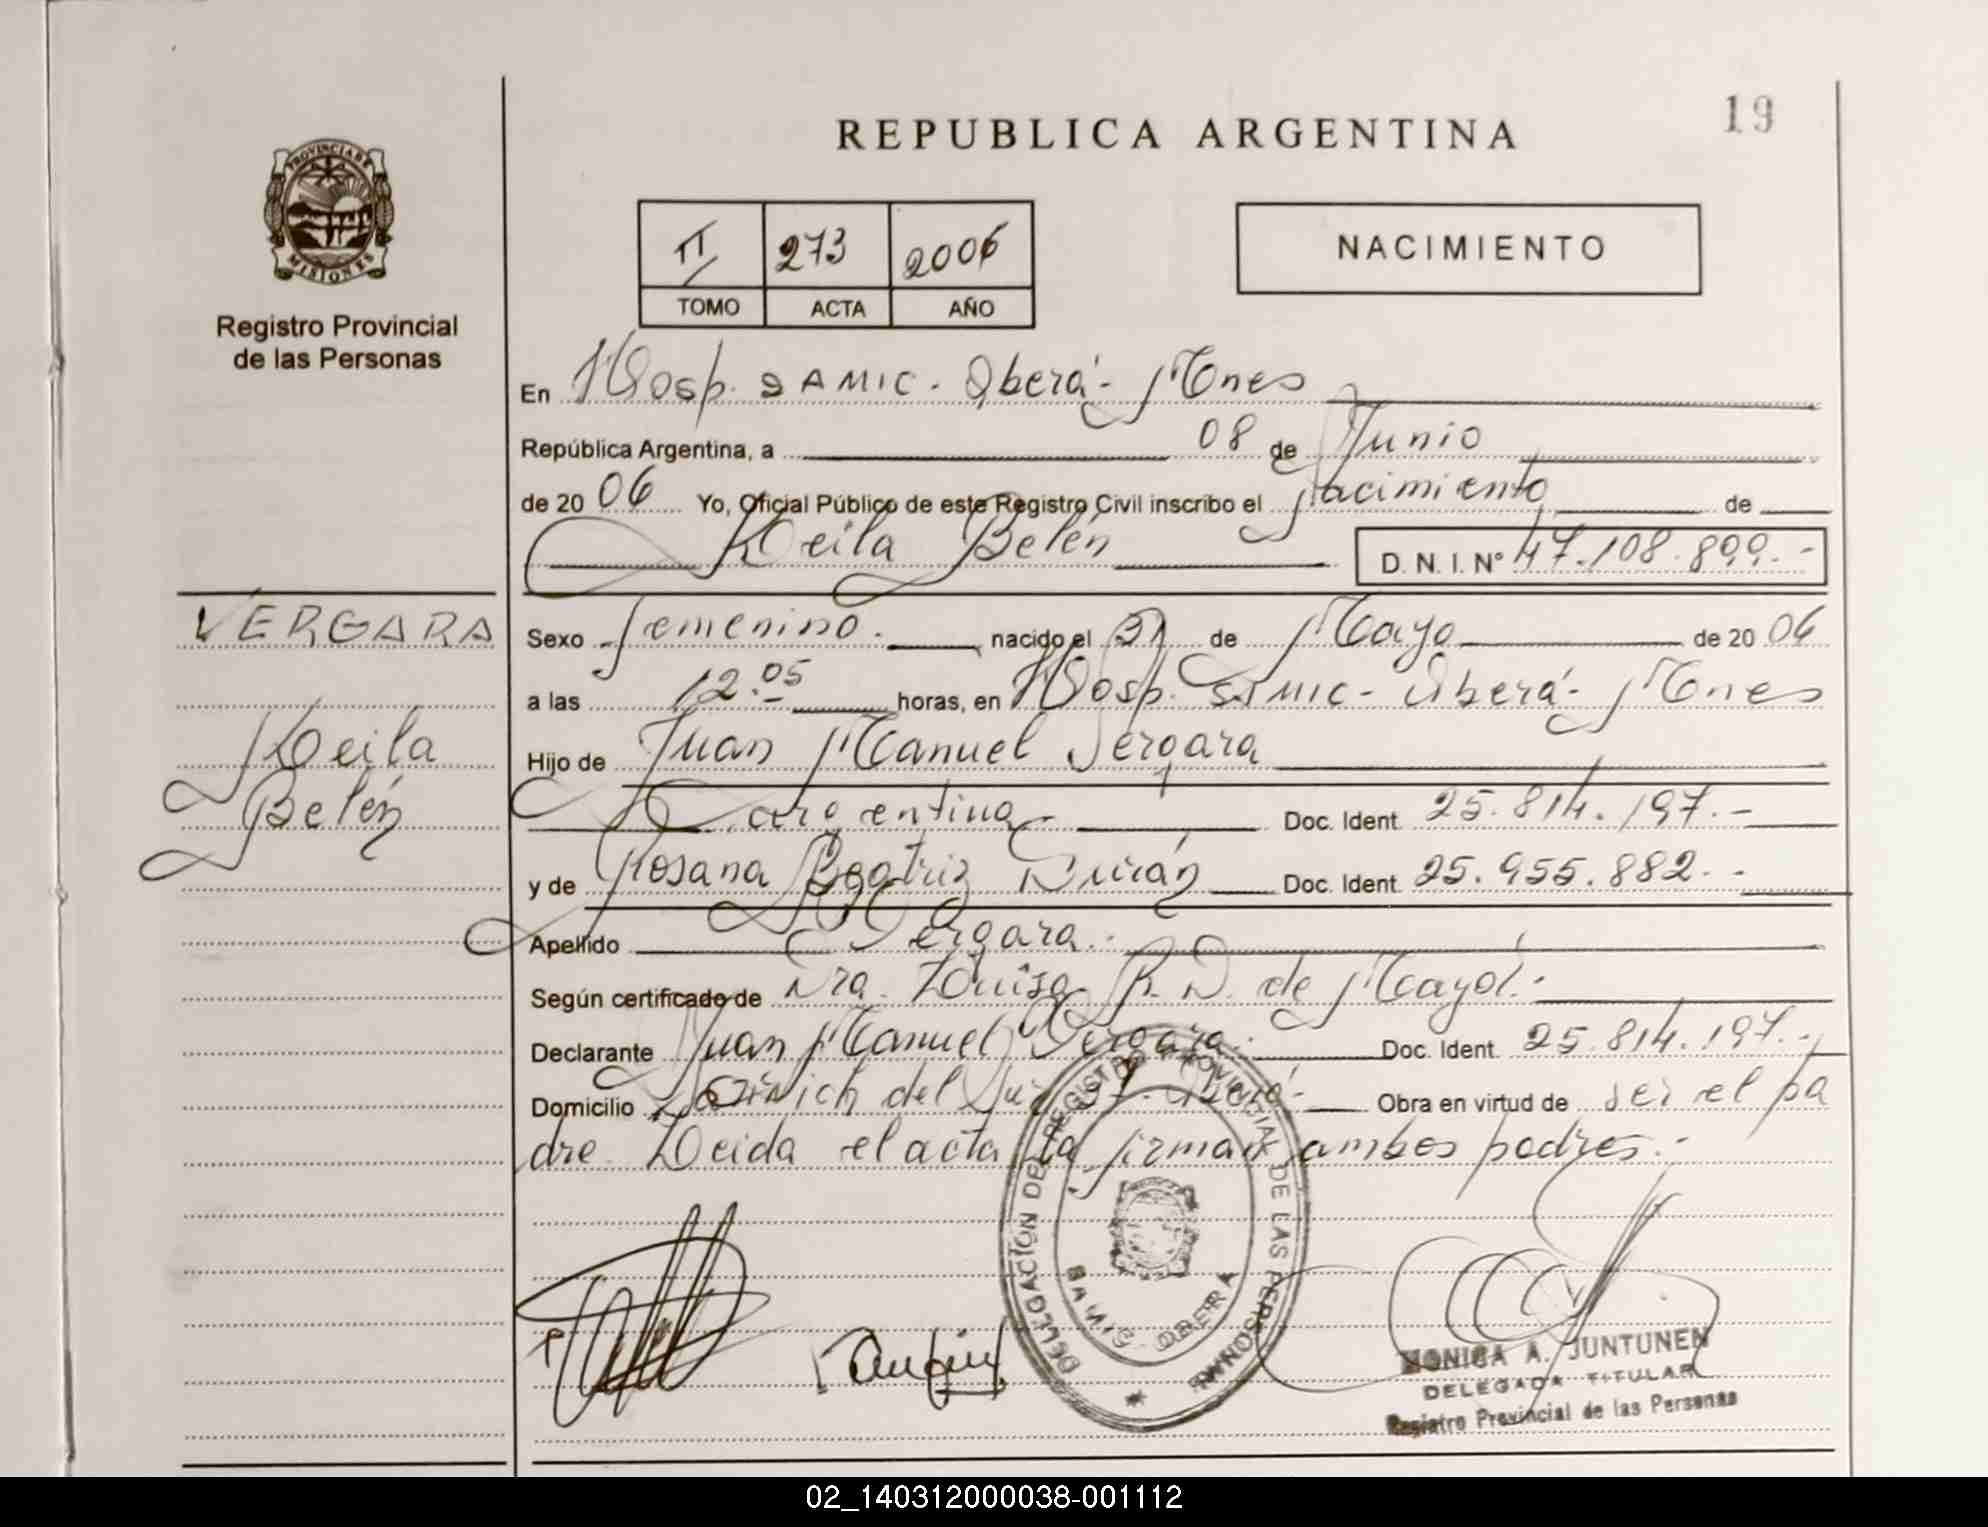 19
REPUBLICA ARGENTINA
PROVINCIA DE
MISIONES
Registro Provincial
de las Personas
II 273 2006
TOMO ACTA AÑO
NACIMIENTO
En Hosp. SAMIC. Oberá - Mnes
República Argentina, a 08 de Junio
de 2006 Yo, Oficial Público de este Registro Civil inscribo el Nacimiento de
Keila Belén D. N. I. N° 47.108.899.-
VERGARA
Keila
Belén
Sexo Femenino. nacido el 31 de Mayo de 2006
a las 12.05 horas, en Hosp. SAMIC - Oberá - Mnes
Hijo de Juan Manuel Vergara
argentino - Doc. Ident. 25.814.197.-
y de Rosana Beatriz Doc. Ident. 25.955.882.-
Apellido Vergara.-
Según certificado de Dra. Luisa R. D. de Mayol.-
Declarante Juan Manuel Vergara.- Doc. Ident. 25.814.197.-
Domicilio del Oberá.- Obra en virtud de ser el pa
dre. Leida el acta la firman ambos padres.-
DELEGACIÓN DEL REGISTRO PROVINCIAL DE LAS PERSONAS
SAMIC OBERA
MONICA A. JUNTUNEN
DELEGADA TITULAR
Registro Provincial de las Personas
02_140312000038-001112